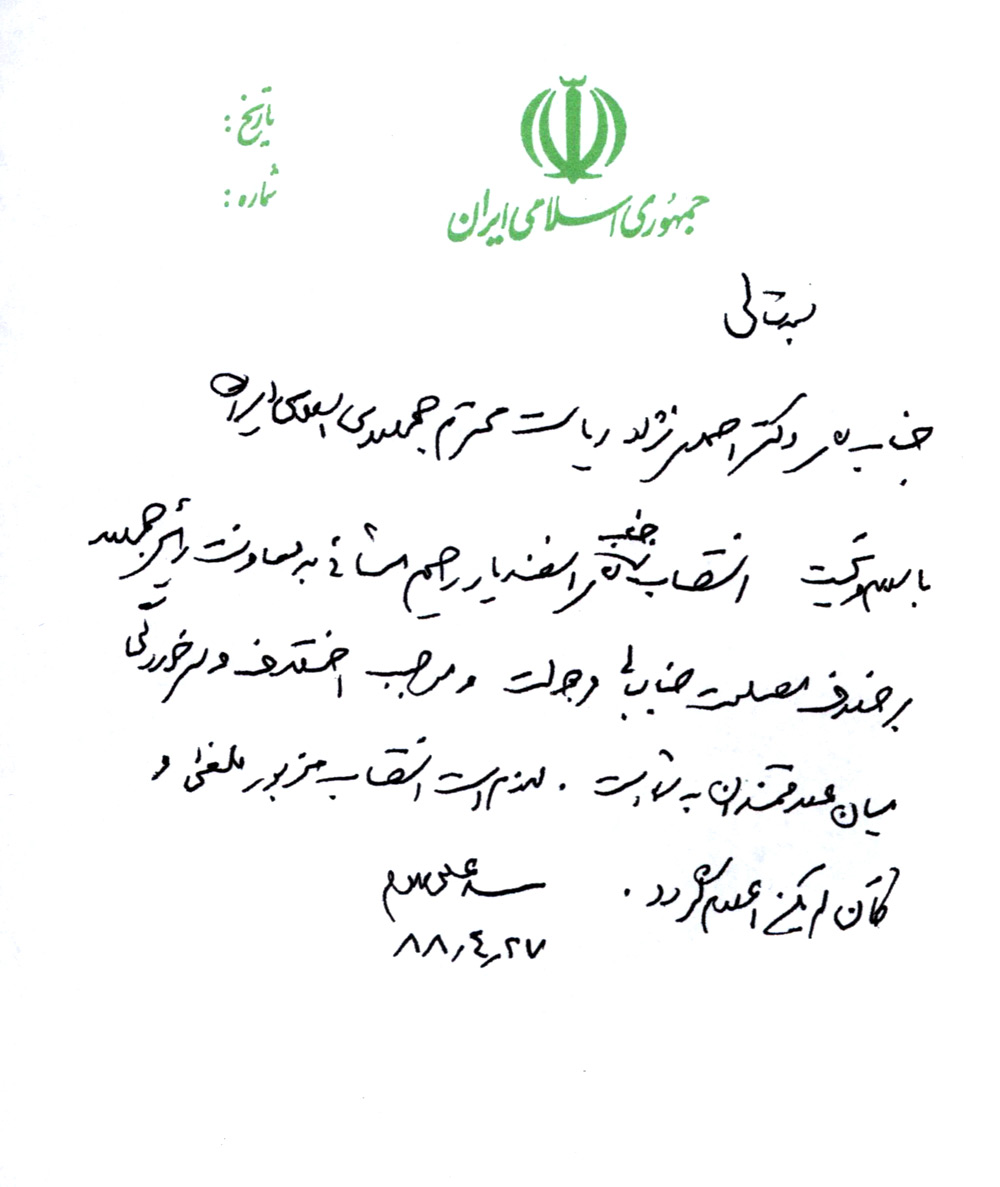 تاریخ :
شماره :
جمهوری اسلامی ایران
بسمه‌تعالی
جناب آقای دکتر احمدی‌نژاد ریاست محترم جمهوری اسلامی ایران
با سلام و تحیت انتصاب جناب آقای اسفندیار رحیم مشائی به معاونت رئیس جمهور
بر خلاف مصلحت جنابعالی و دولت و موجب اختلاف و سرخوردگی
میان علاقمندان به شما است . لازم است انتصاب مزبور ملغی و
کأن لم یکن اعلام گردد .
سید علی خامنه‌ای
۸۸٫۴٫۲۷